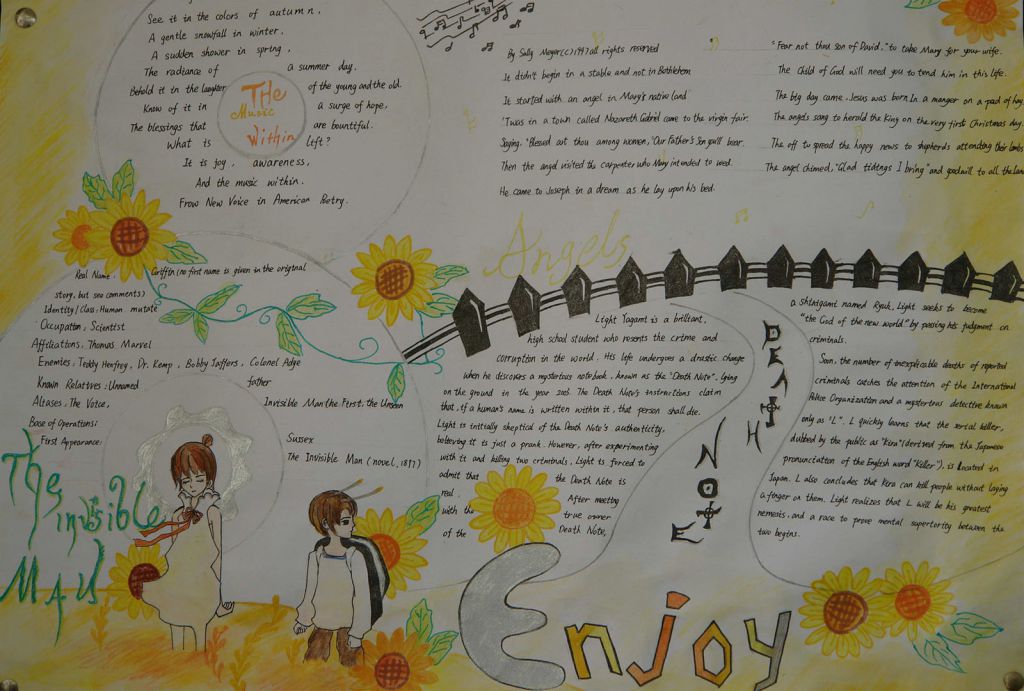 See it in the colors of autumn,
A gentle snowfall in winter.
A sudden shower in spring,
The radiance of a summer day.
Behold it in the laughter of the young and the old.
Know of it in a surge of hope,
The blessings that are bountiful.
What is lift?
It is joy, awareness,
And the music within.
From New Voice in American Poetry.
THe
Music
Within
By Sally Meyer(c)1997 all rights reserved
It didn't begin in a stable and not in Bethlehem
It started with an angel in Mary's native land
'Twas in a town called Nazareth Gabriel came to the virgin fair.
Saying, "Blessed out thou among women," Our Father's Son you'll bear.
Then the angel visited the carpenter who Mary intended to wed.
He came to Joseph in a dream as he lay upon his bed.
"Fear not thou son of David," to take Mary for your wife.
The Child of God will need you to tend him in this life.
The big day came. Jesus was born In a manger on a pad of hay
The angels sang to herald the King on the very first Christmas day
The off to spread the happy news to shepherds attending their lambs
The angel chimed, "Glad tidings I bring" and goodwill to all the land
Angels
Real Name: Griffin (no first name is given in the original
story, but seo comments)
Identity/Class: Human mutate
Occupation, Scientist
Affilications, Thomas Marvel
Enemies, Teddy Henfrey, Dr. Kemp, Bobby Jaffers, Colonel Adye
Known Relatives: Unnamed father
Aliases, The Voice, Invisible Man the First, the Unseen
Base of Operations: Sussex
First Appearance: The Invisible Man (novel, 1897)
The
invisible
MAN
Light Yagami is a brilliant,
high school student who resents the crime and
corruption in the world. His life undergoes a drastic change
when he discovers a mysterious notebook, known as the "Death Note", lying
on the ground in the year 2003. The Death Note's instructions claim
that, if a human's name is written within it, that person shall die.
Light is initially skeptical of the Death Note's authenticity,
believing it is just a prank. However, after experimenting
with it and killing two criminals, Light is forced to
admit that the Death Note is
real. After meeting
with the true owner
of the Death Note,
DEATH
NOTE
a Shinigami named Ryuk, Light seeks to become
"the God of the new world" by passing his judgment on
criminals.
Soon, the number of inexplicable deaths of reported
criminals catches the attention of the International
Police Organization and a mysterious detective known
only as "L". L quickly learns that the serial killer,
dubbed by the public as "Kira" (derived from the Japanese
pronunciation of the English word "Killer"), is located in
Japan. L also concludes that Kira can kill people without laying
a finger on them. Light realizes that L will be his greatest
nemesis, and a race to prove mental superiority between the
two begins.
Enjoy